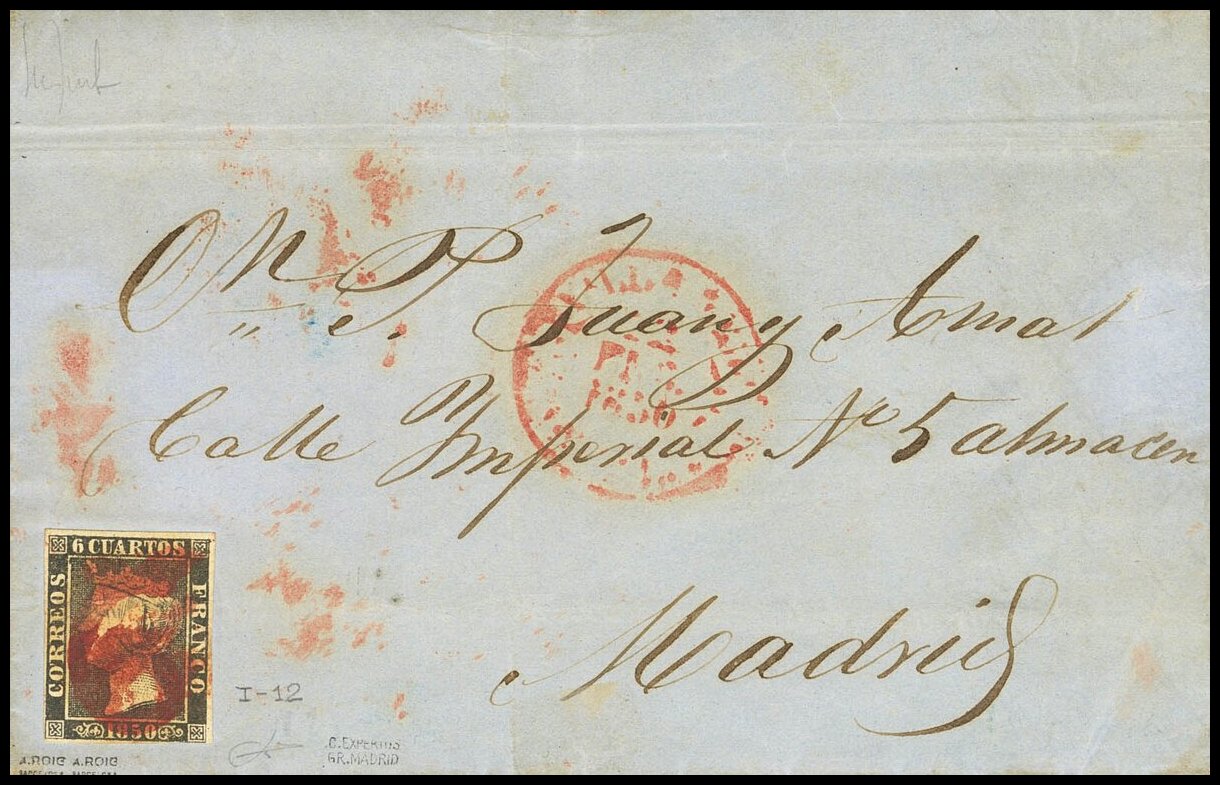 Juan y Amat
Calle Imperial Nº 5 almacen
Madrid
1850
6 CUARTOS
CORREOS
FRANCO
1850
I-12
A.ROIG A.ROIG
BARCELONA BARCELONA
C.EXPERTOS
GR.MADRID